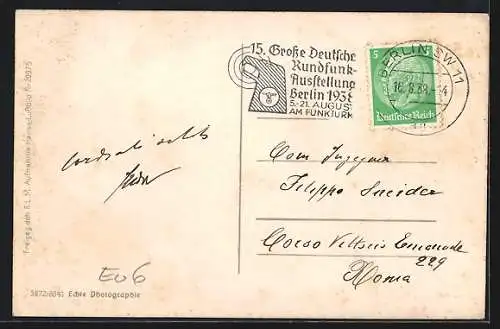 15. Große Deutsche
Rundfunk-
Ausstellung
Berlin 1938
5.-21. AUGUST
AM FUNKTURM
5
Deutsches Reich
BERLIN SW 11
16.8.38.
cordiali saluti
Filippo Sneider
Corso Vittorio Emanuele
229
Roma
EU6
Echte Photographie
Freigeg. dch. R.L.M.